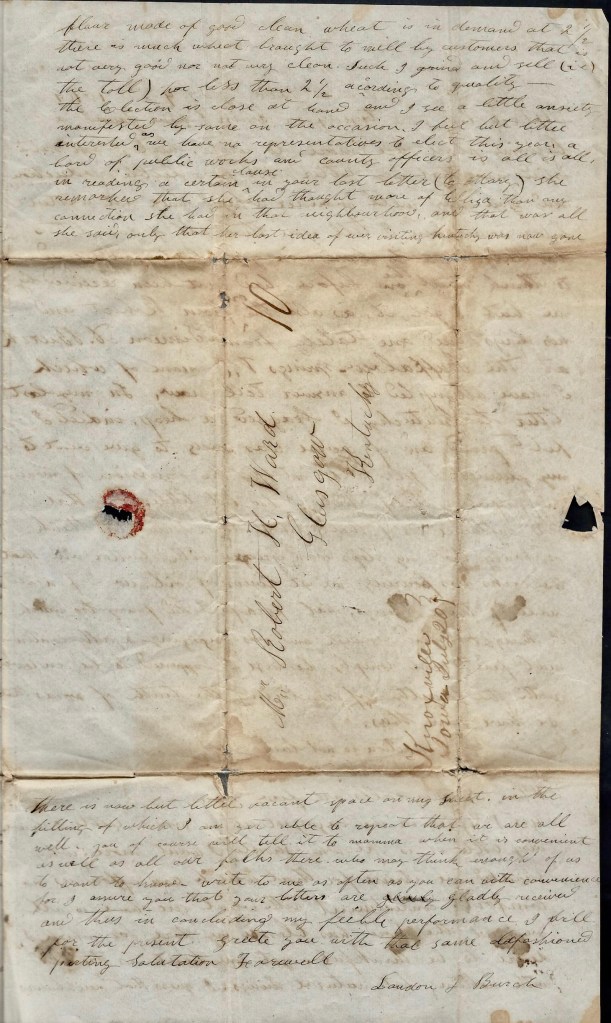 flour made of good clean wheat is in demand at 2 1/2
there is much wheat brought to mill by customers that is
not very good nor not very clean. Such I grind and sell (ie)
the toll) for less than 2 1/2 acording to quality
the Election is close at hand and I see a little anxiety
manifested by some on the occasion. I feel but little
interested as we have no representatives to elect this year a
bord of public works and county officers is all is all,
in reading a certain clause in your last letter (to Mary) she
remarked that she had thought more of than any
connection she had in that neighbourhood, and that was all
she said, only that her last idea of ever visiting Kentucky was now gone
10
Mr Robert H. Ward
Glasgow
Kentucky
Knoxville
Iowa July 20
there is now but littel vacant space on my sheet. in the
filling of which I am yet able to repeat that we are all
well. you of course will tell it to momma when it is convenient
as well as all our folks there who may think enough of us
to want to know. write to me as often as you can with convenience
for I assure you that your letters are gladly received
and thus in concluding my feeble performance I will
for the present greete you with that same oldfashioned
parting Salutation Farewell
Landon J Burch